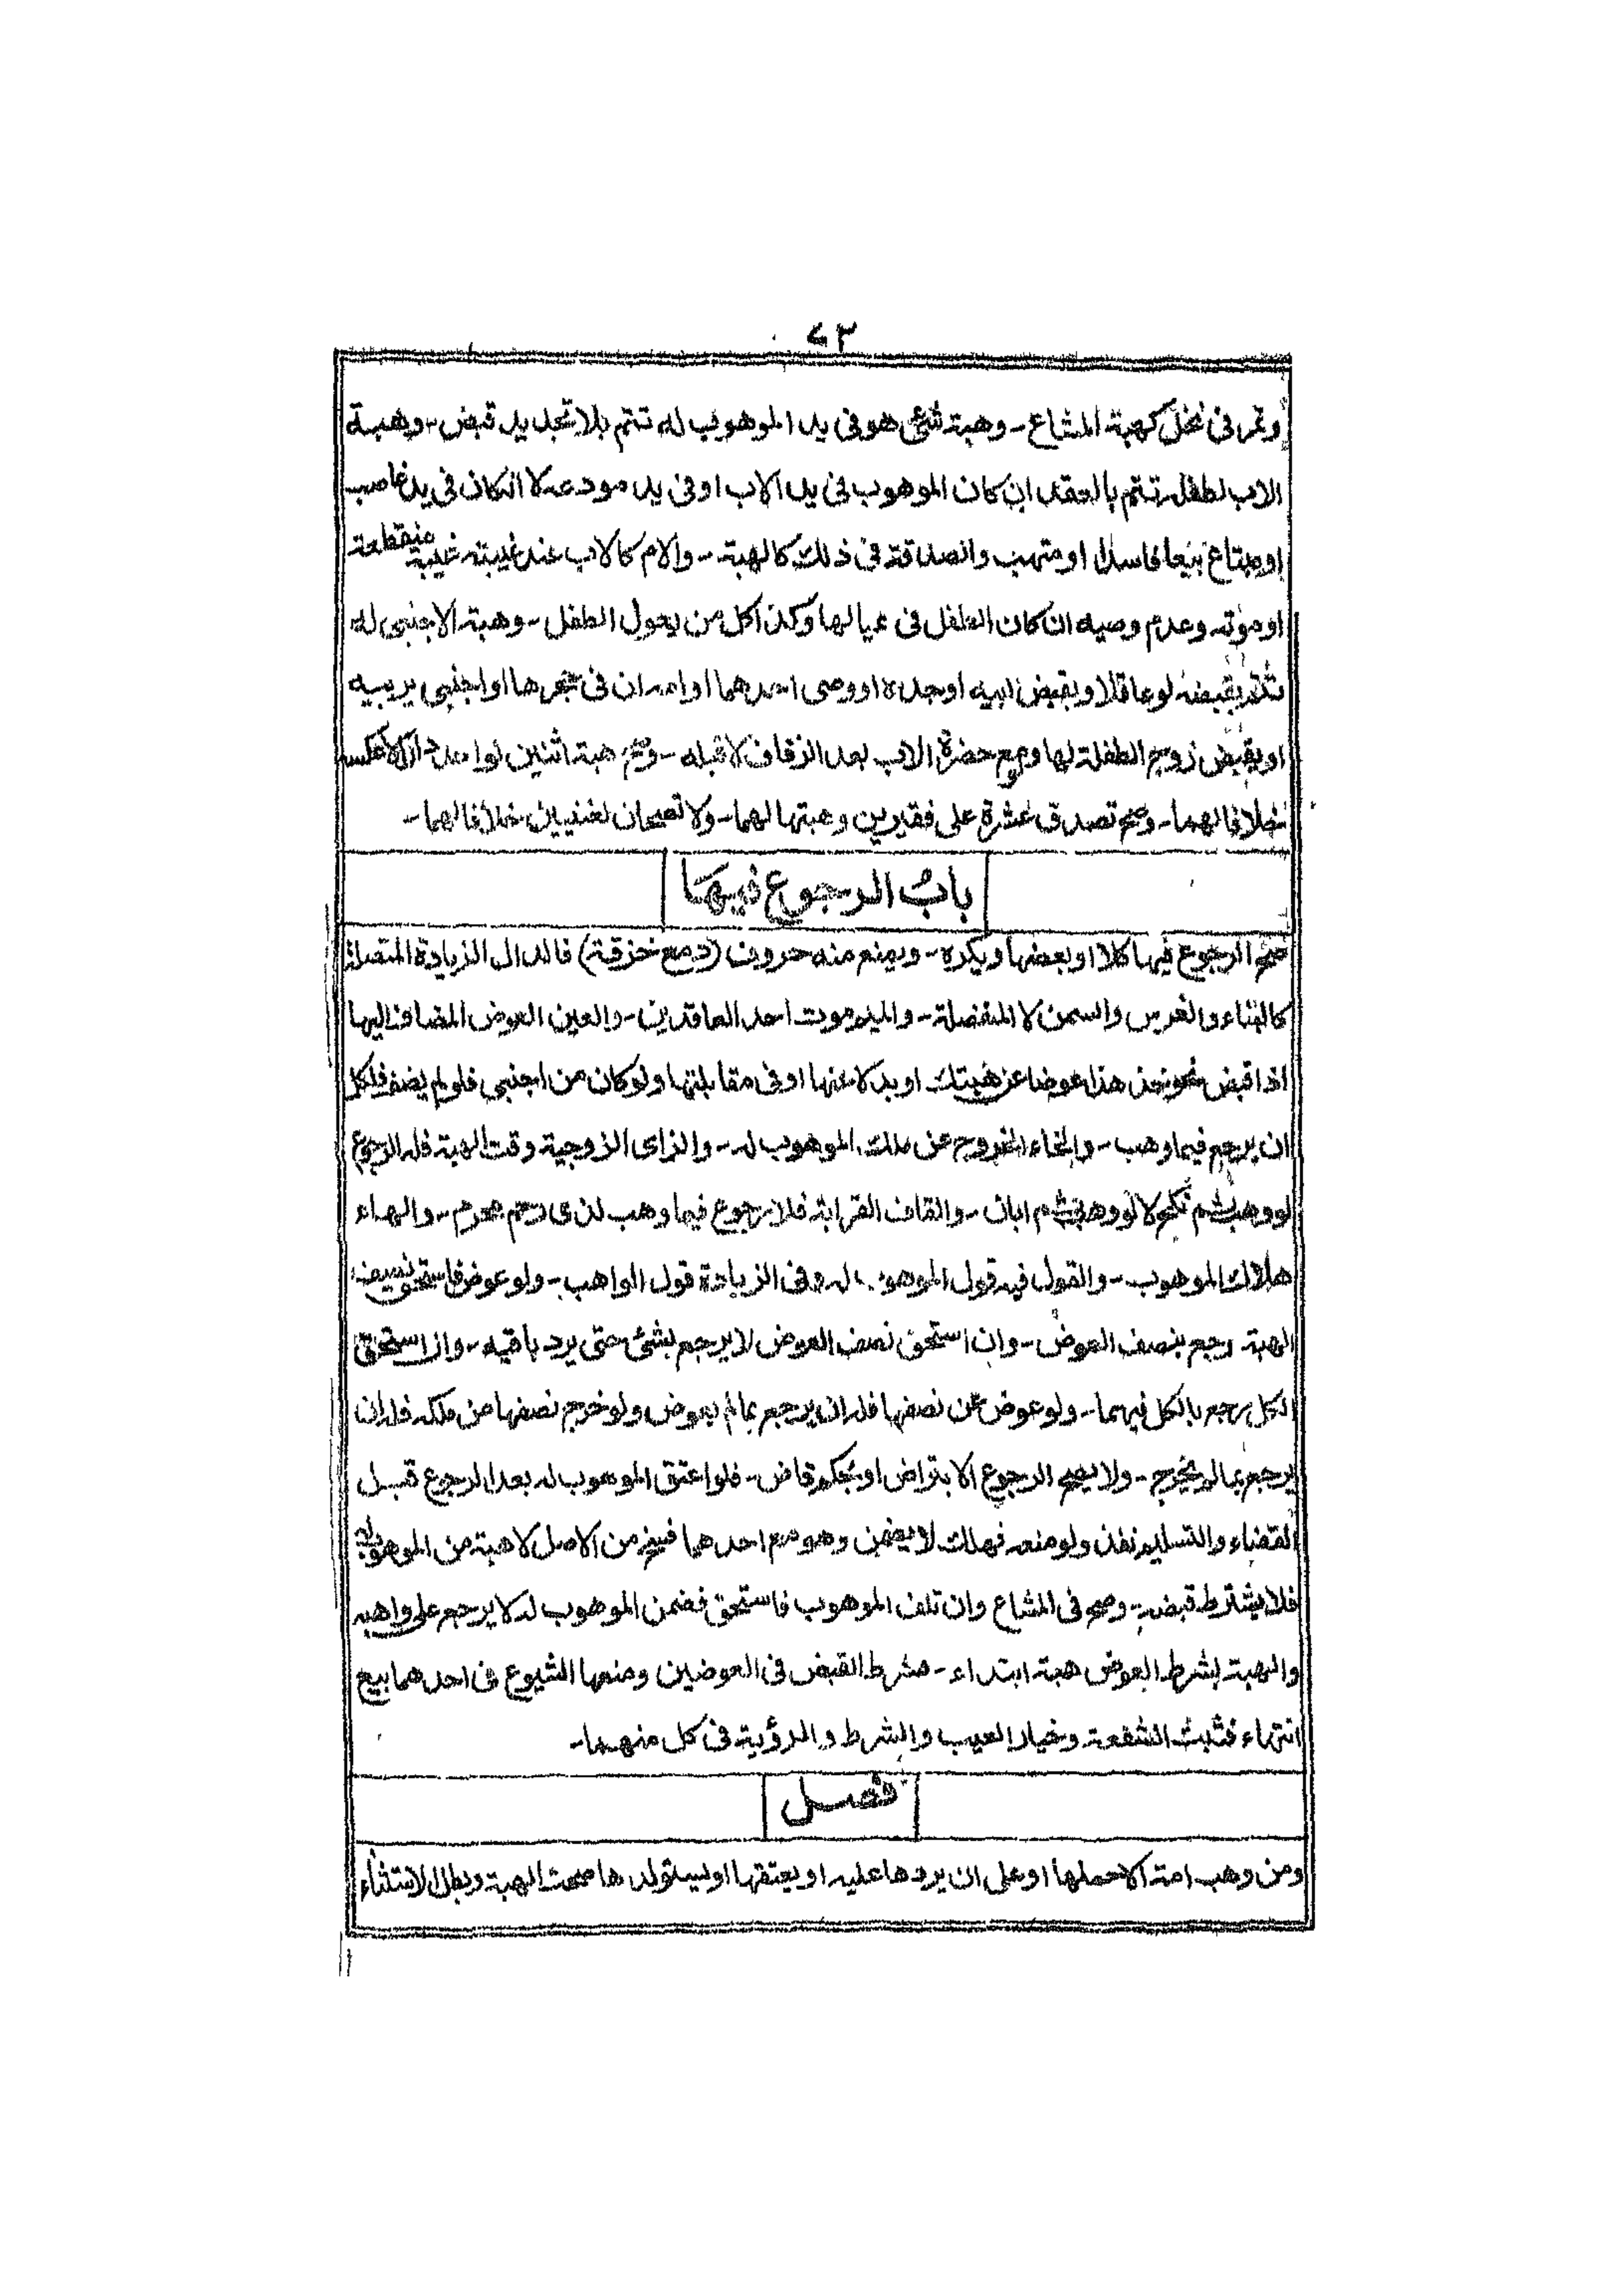 ٧٣
وتمر فى نخل كهبة المشاع - وهبة شئ هو فى يد الموهوب له تتم بلا تجديد قبض - وهبة
الاب لطفله تتم بالعقد ان كان الموهوب فى يد الاب او فى يد مودعه لا ان كان فى يد غاصب
او مبتاع بيعا فاسدا او متهب والصدقة فى ذلك كالهبة - والام كالاب عند غيبته غيبة منقطعة
او موته وعدم وصيه ان كان الطفل فى عيالها وكذا كل من يعول الطفل - وهبة الاجنبى له
تتم بقبضه لو عاقلا وبقبض ابيه او جده او وصى احدهما او امه ان فى حجرها او اجنبى يربيه
او بقبض زوج الطفلة لها ومع حضرة الاب بعد الزفاف لا قبله - وصح هبة اثنين لواحد دارا لا عكسه
خلافا لهما - وصح تصدق عشرة على فقيرين وهبتها لهما - ولا تصحان لغنيين خلافا لهما -
باب الرجوع فيها
صح الرجوع فيها كلا او بعضها ويكره - ويمنع منه حروف (دمع خزقة) فالدال الزيادة المتصلة
كالبناء والغرس والسمن لا المنفصلة - والميم موت احد العاقدين - والعين العوض المضاف اليها
اذا قبض نحو خذ هذا عوضا عن هبتك او بدلا عنها او فى مقابلتها ولو كان من اجنبى فلو لم يضف فلكل
ان يرجع فيما وهب - والخاء الخروج عن ملك الموهوب له - والزاى الزوجية وقت الهبة فله الرجوع
لو وهب ثم نكح لا لو وهب ثم ابان - والقاف القرابة فلا رجوع فيما وهب لذى رحم محرم - والهاء
هلاك الموهوب - والقول فيه قول الموهوب له وفى الزيادة قول الواهب - ولو عوض فاستحق نصف
الهبة رجع بنصف العوض - وان استحق نصف العوض لا يرجع بشئ حتى يرد باقيه - وان استحق
الكل رجع بالكل فيهما - ولو عوض عن نصفها فله ان يرجع بما لم يعوض ولو خرج نصفها من ملكه فله ان
يرجع بما لم يخرج - ولا يصح الرجوع الا بتراض او بحكم قاض - فلو اعتق الموهوب له بعد الرجوع قبل
القضاء والتسليم نفذ ولو منعه فهلك لا يضمن وهو مع احدهما فسخ من الاصل لا هبة من الموهوب له
فلا يشترط قبضه - وصح فى المشاع وان تلف الموهوب فاستحق فضمن الموهوب له لا يرجع على واهبه
والهبة بشرط العوض هبة ابتداء - فشرط القبض فى العوضين ومنعها الشيوع فى احدهما بيع
انتهاء فتثبت الشفعة وخيار العيب والشرط والرؤية فى كل منهما -
فصل
ومن وهب امة الا حملها او على ان يردها عليه او يعتقها او يستولدها صحت الهبة وبطل الاستثناء